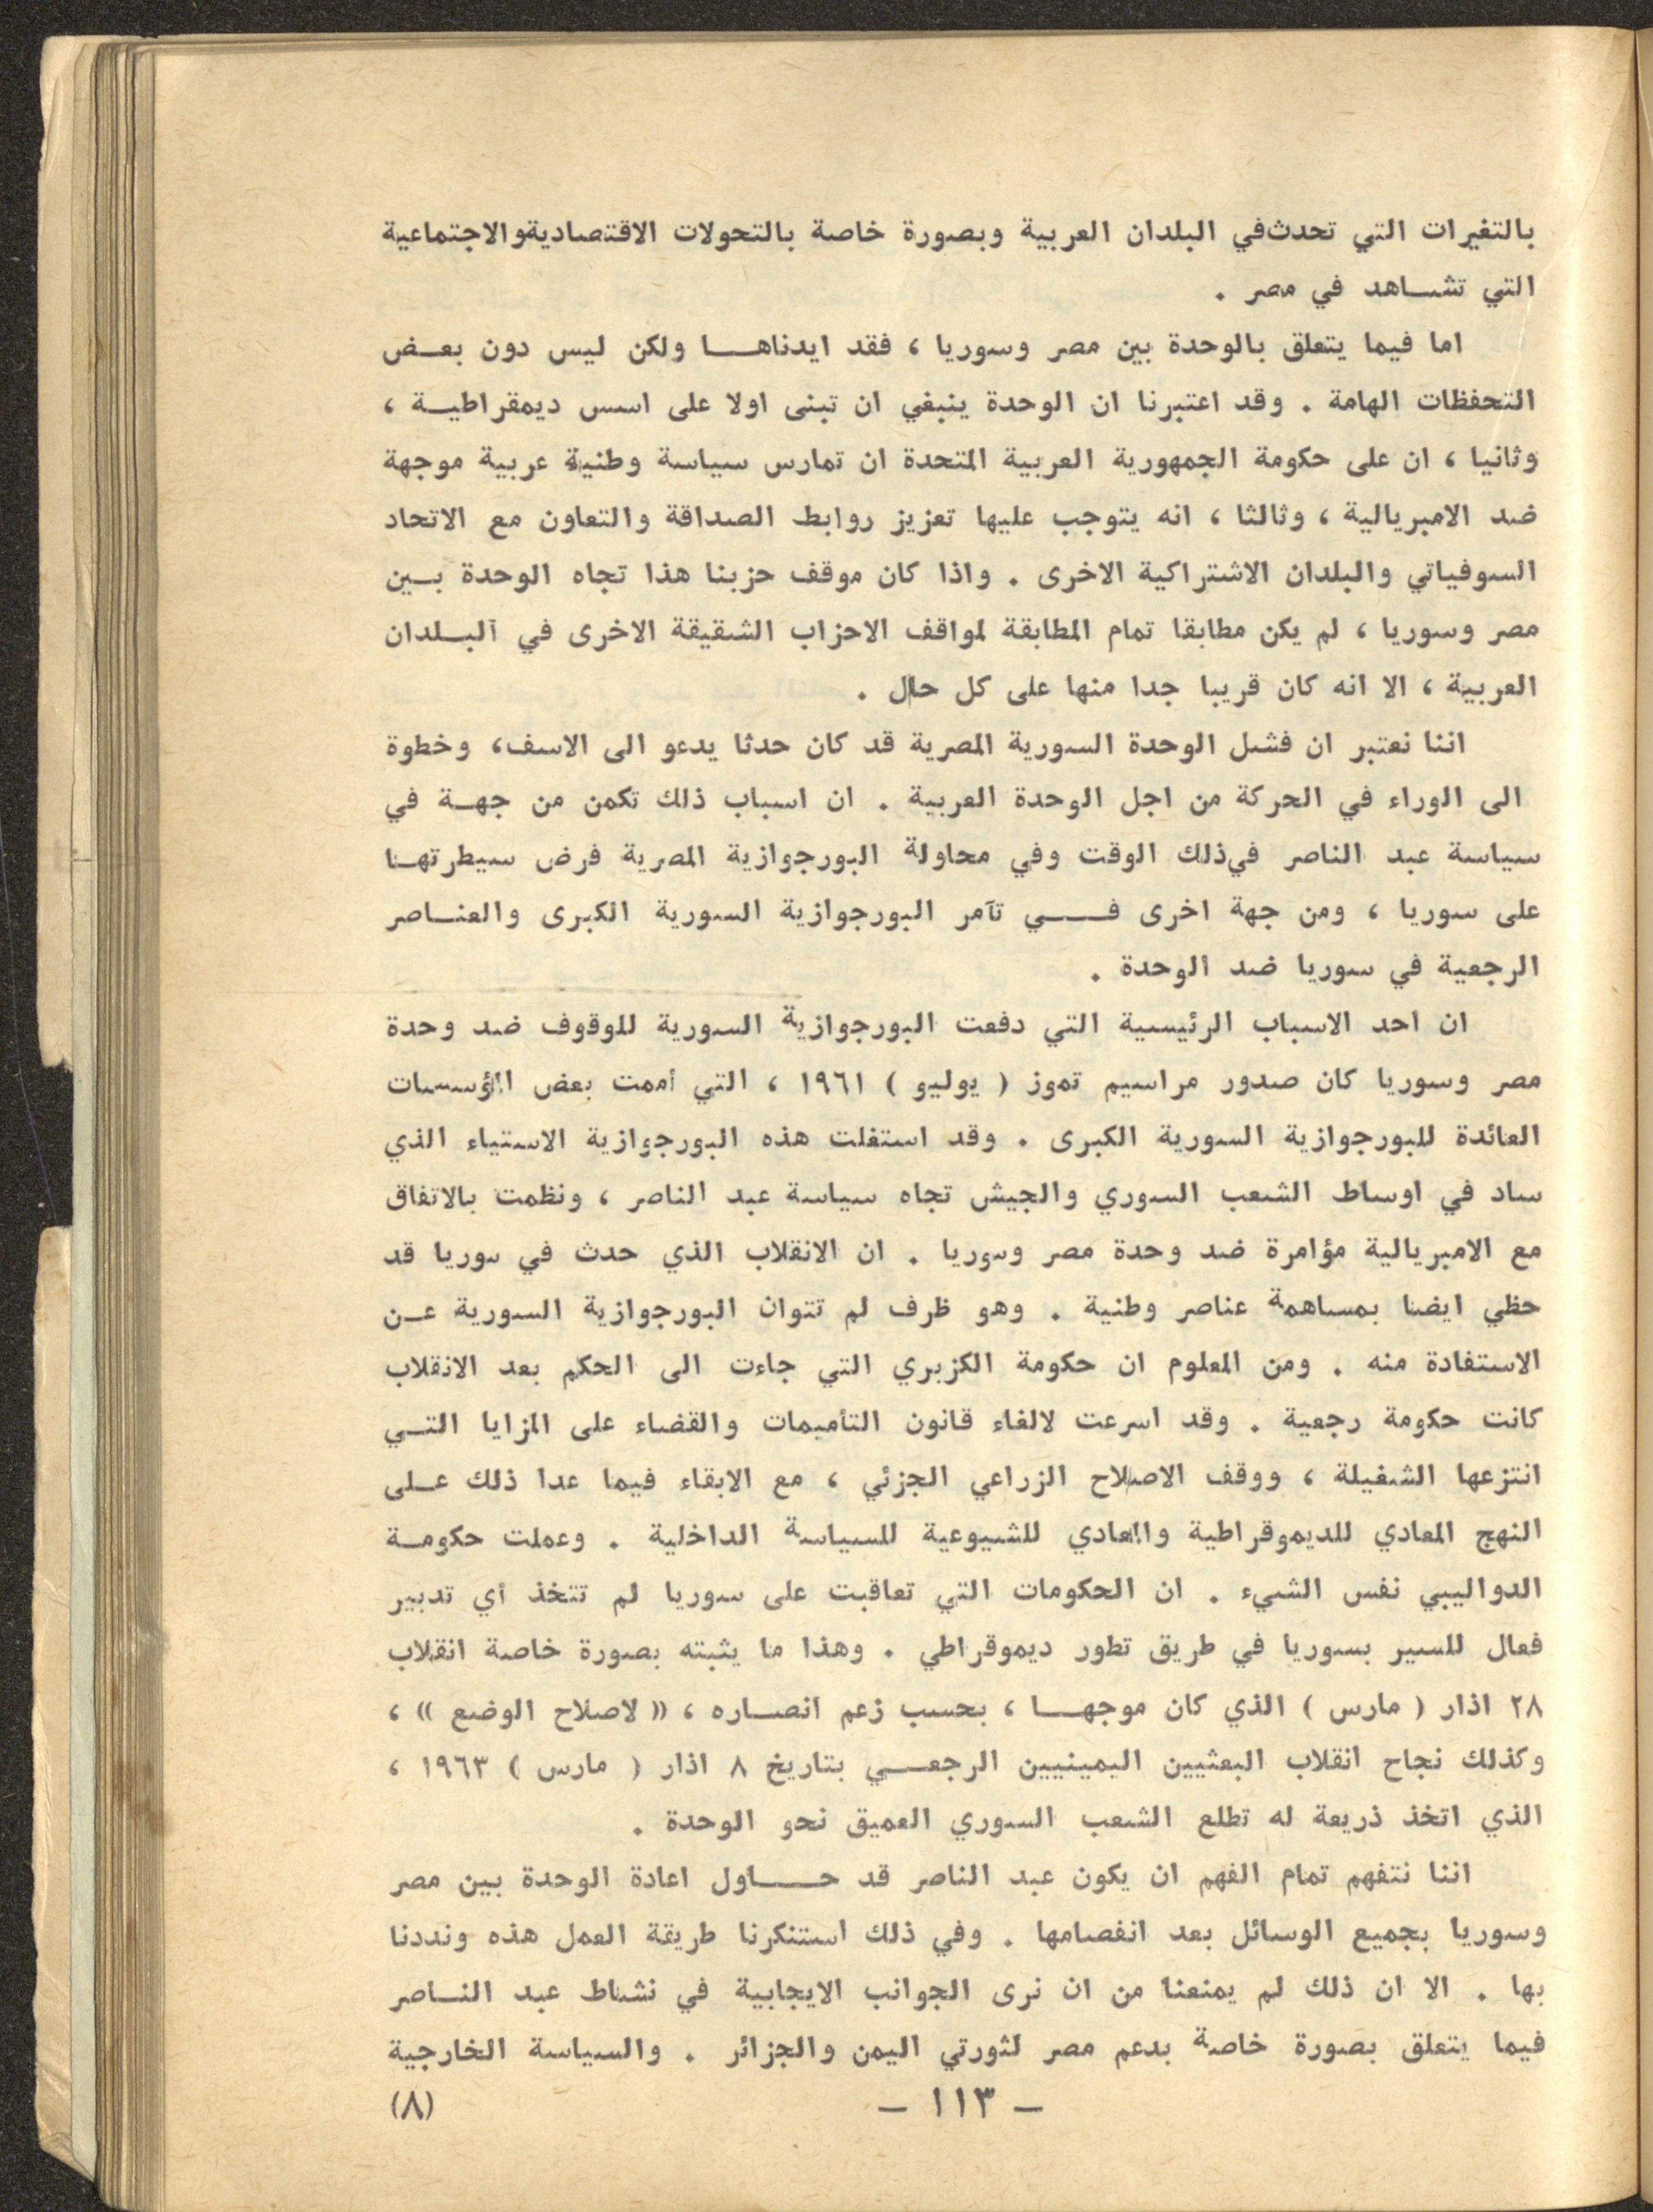 بالتغيرات التي تحدث في البلدان العربية وبصورة خاصة بالتحولات الاقتصادية والاجتماعية
التي تشاهد في مصر .
اما فيما يتعلق بالوحدة بين مصر وسوريا ، فقد ايدناها ولكن ليس دون بعض
التحفظات الهامة . وقد اعتبرنا ان الوحدة ينبغي ان تبنى اولا على اسس ديمقراطية ،
وثانيا ، ان على حكومة الجمهورية العربية المتحدة ان تمارس سياسة وطنية عربية موجهة
ضد الامبريالية ، وثالثا ، انه يتوجب عليها تعزيز روابط الصداقة والتعاون مع الاتحاد
السوفياتي والبلدان الاشتراكية الاخرى . واذا كان موقف حزبنا هذا تجاه الوحدة بين
مصر وسوريا ، لم يكن مطابقا تمام المطابقة لمواقف الاحزاب الشقيقة الاخرى في البلدان
العربية ، الا انه كان قريبا جدا منها على كل حال .
اننا نعتبر ان فشل الوحدة السورية المصرية قد كان حدثا يدعو الى الاسف ، وخطوة
الى الوراء في الحركة من اجل الوحدة العربية . ان اسباب ذلك تكمن من جهة في
سياسة عبد الناصر في ذلك الوقت وفي محاولة البورجوازية المصرية فرض سيطرتها
على سوريا ، ومن جهة اخرى في تآمر البورجوازية السورية الكبرى والعناصر
الرجعية في سوريا ضد الوحدة .
ان احد الاسباب الرئيسية التي دفعت البورجوازية السورية للوقوف ضد وحدة
مصر وسوريا كان صدور مراسيم تموز ( يوليو ) ١٩٦١ ، التي أممت بعض المؤسسات
العائدة للبورجوازية السورية الكبرى . وقد استغلت هذه البورجوازية الاستياء الذي
ساد في اوساط الشعب السوري والجيش تجاه سياسة عبد الناصر ، ونظمت بالاتفاق
مع الامبريالية مؤامرة ضد وحدة مصر وسوريا . ان الانقلاب الذي حدث في سوريا قد
حظي ايضا بمساهمة عناصر وطنية . وهو ظرف لم تتوان البورجوازية السورية عن
الاستفادة منه . ومن المعلوم ان حكومة الكزبري التي جاءت الى الحكم بعد الانقلاب
كانت حكومة رجعية . وقد اسرعت لالغاء قانون التأميمات والقضاء على المزايا التي
انتزعها الشغيلة ، ووقف الاصلاح الزراعي الجزئي ، مع الابقاء فيما عدا ذلك على
النهج المعادي للديموقراطية والمعادي للشيوعية للسياسة الداخلية . وعملت حكومة
الدواليبي نفس الشيء . ان الحكومات التي تعاقبت على سوريا لم تتخذ أي تدبير
فعال للسير بسوريا في طريق تطور ديموقراطي . وهذا ما يثبته بصورة خاصة انقلاب
٢٨ اذار ( مارس ) الذي كان موجها ، بحسب زعم انصاره ، « لاصلاح الوضع » ،
وكذلك نجاح انقلاب البعثيين اليمينيين الرجعي بتاريخ ٨ اذار ( مارس ) ١٩٦٣ ،
الذي اتخذ ذريعة له تطلع الشعب السوري العميق نحو الوحدة .
اننا نتفهم تمام الفهم ان يكون عبد الناصر قد حاول اعادة الوحدة بين مصر
وسوريا بجميع الوسائل بعد انفصامها . وفي ذلك استنكرنا طريقة العمل هذه ونددنا
بها . الا ان ذلك لم يمنعنا من ان نرى الجوانب الايجابية في نشاط عبد الناصر
فيما يتعلق بصورة خاصة بدعم مصر لثورتي اليمن والجزائر . والسياسة الخارجية
– ١١٣ –
(٨)